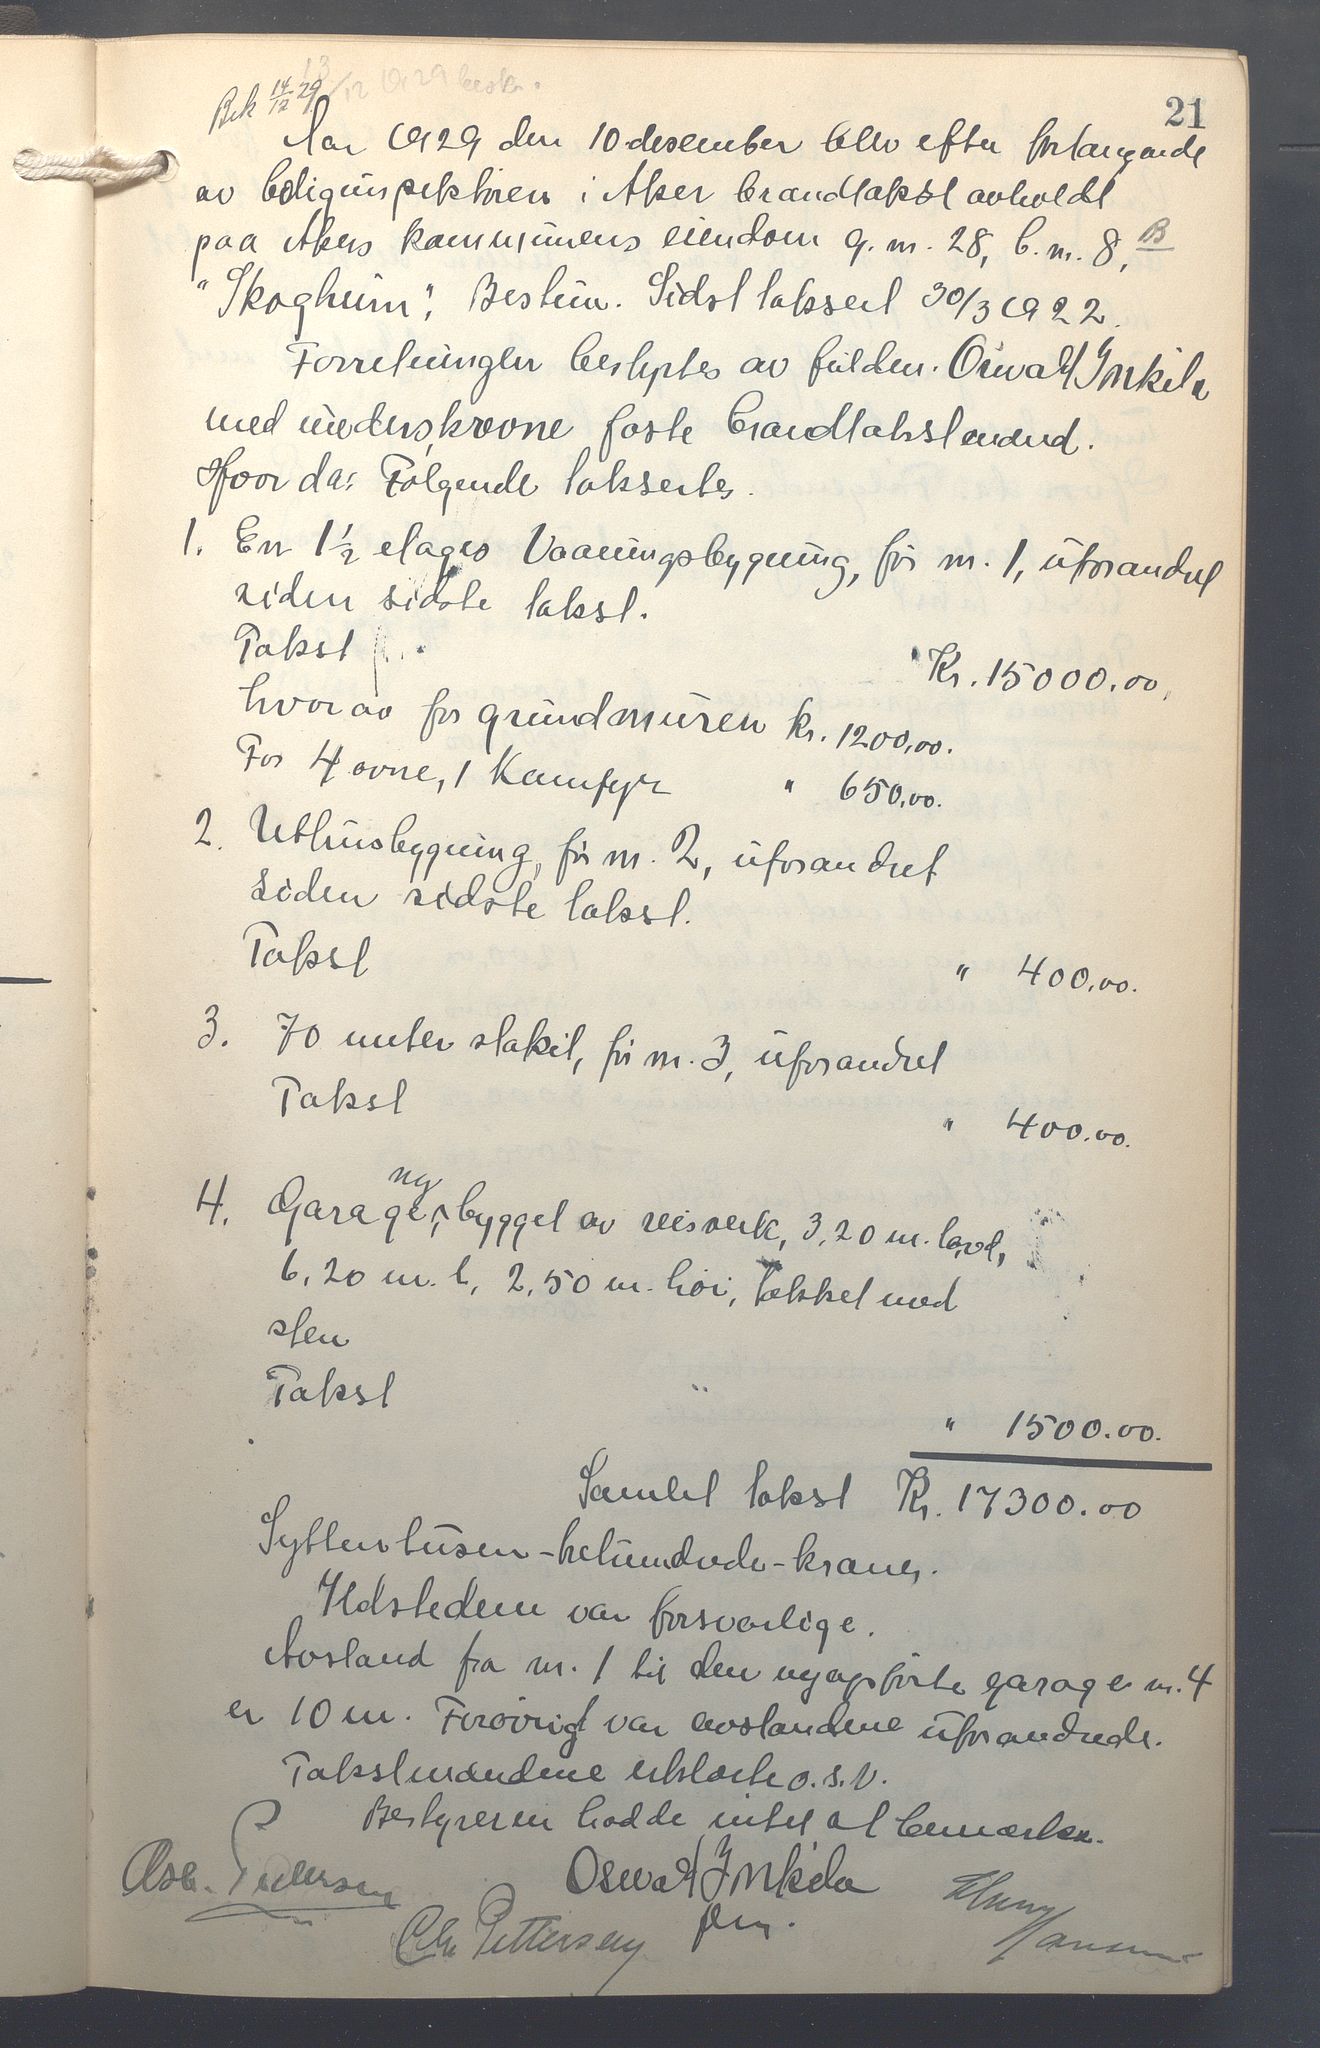 21
Bek 14/12 29
Aar 1929 den 10 desember blev efter forlangende
av boliginspektören i Aker brandtakst avholdt
paa Akers kommunens eiendom g. nr. 28, b. nr. 8, B
"Skogheim", Bestun. Sidst taksert 30/3 1922.
Forretningen bestyrtes av fuldm. Osvald Inkila
med underskrevne faste brandtakstmænd.
Hvor da: Følgende taksertes.
1. En 1½ etages Vaaningsbygning, før nr. 1, uforandret
siden sidste takst.
Takst Kr. 15000.00
hvorav for grundmuren kr. 1200,00.
For 4 ovne, 1 Kamfyr " 650,00.
2. Uthusbygning, før nr. 2, uforandret
siden sidste takst.
Takst " 400,00.
3. 70 meter stakit, før nr. 3, uforandret
Takst " 400.00.
4. Garage, ny, bygget av reisverk, 3,20 m. bred,
6,20 m. l, 2,50 m. høi, tekket med
sten
Takst " 1500.00.
Samlet takst Kr. 17300.00
Syttentusen-trehundrede-kroner.
Ildstedene var forsvarlige.
Avstand fra nr. 1 til den nyopførte garage nr. 4
er 10 m. Forøvrigt var avstandene uforandrede.
Takstmændene erklærte o.s.v.
Bestyreren hadde intet at bemærke.
Osvald Inkila
Pedersen
Chr Pettersen
Hansen